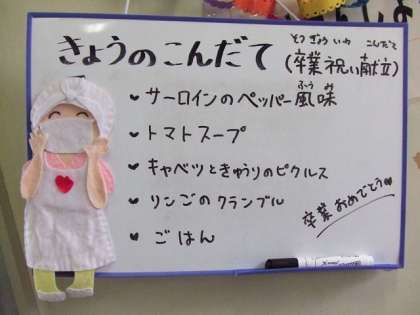 きょうのこんだて
そつぎょういわ こんだて
(卒業祝い献立)
サーロインのペッパー風味
ふう み
トマトスープ
キャベツときゅうりのピクルス
リンゴのクランブル
ごはん
卒業おめでとう